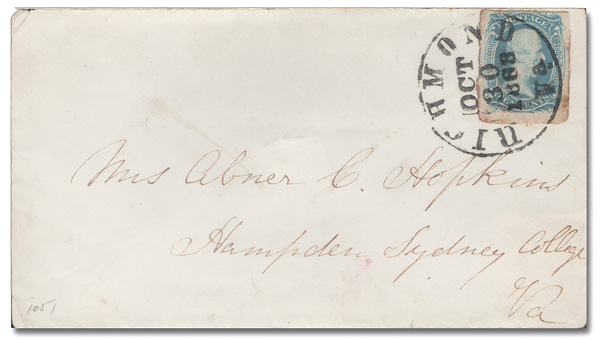 RICHMOND Va.
OCT
30
1863
POSTAGE
Mrs Abner C. Hopkins
Hampden Sydney College
Va
1051